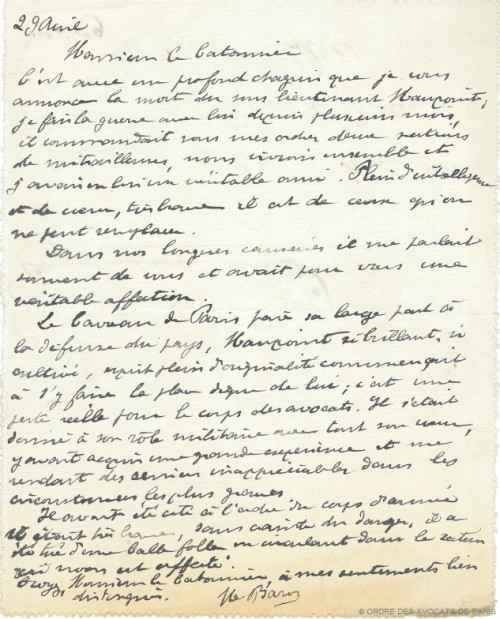 29 Avril
Monsieur le batonnier
C'est avec un profond chagrin que je vous
annonce la mort du sous lieutenant Maupoint,
je fais la guerre avec lui depuis plusieurs mois,
il commandait sous mes ordres deux sections
de mitrailleuses, nous vivions ensemble et
j'avais en lui un véritable ami. Plein d'intelligence
et de cœur, très brave il est de ceux qu'on
ne peut remplacer.
Dans nos longues causeries il me parlait
souvent de vous et avait pour vous une
véritable affection.
Le barreau de Paris paie sa large part à
la défense du pays, Maupoint si brillant, si
cultivé, esprit plein d'originalité commençait
à s'y faire la place digne de lui; c'est une
perte réelle pour le corps des avocats. Il s'était
donné à son rôle militaire avec tout son cœur,
y avait acquis une grande expérience et me
rendait des services inappréciables dans les
circonstances les plus graves.
Il avait été cité à l'ordre du corps d'armée
et était très brave, sans crainte du danger, il a
été tué d'une balle folle en circulant dans le secteur
qui nous est affecté.
Croyez Monsieur le batonnier, à mes sentiments bien
distingués.
© ORDRE DES AVOCATS DE PARIS